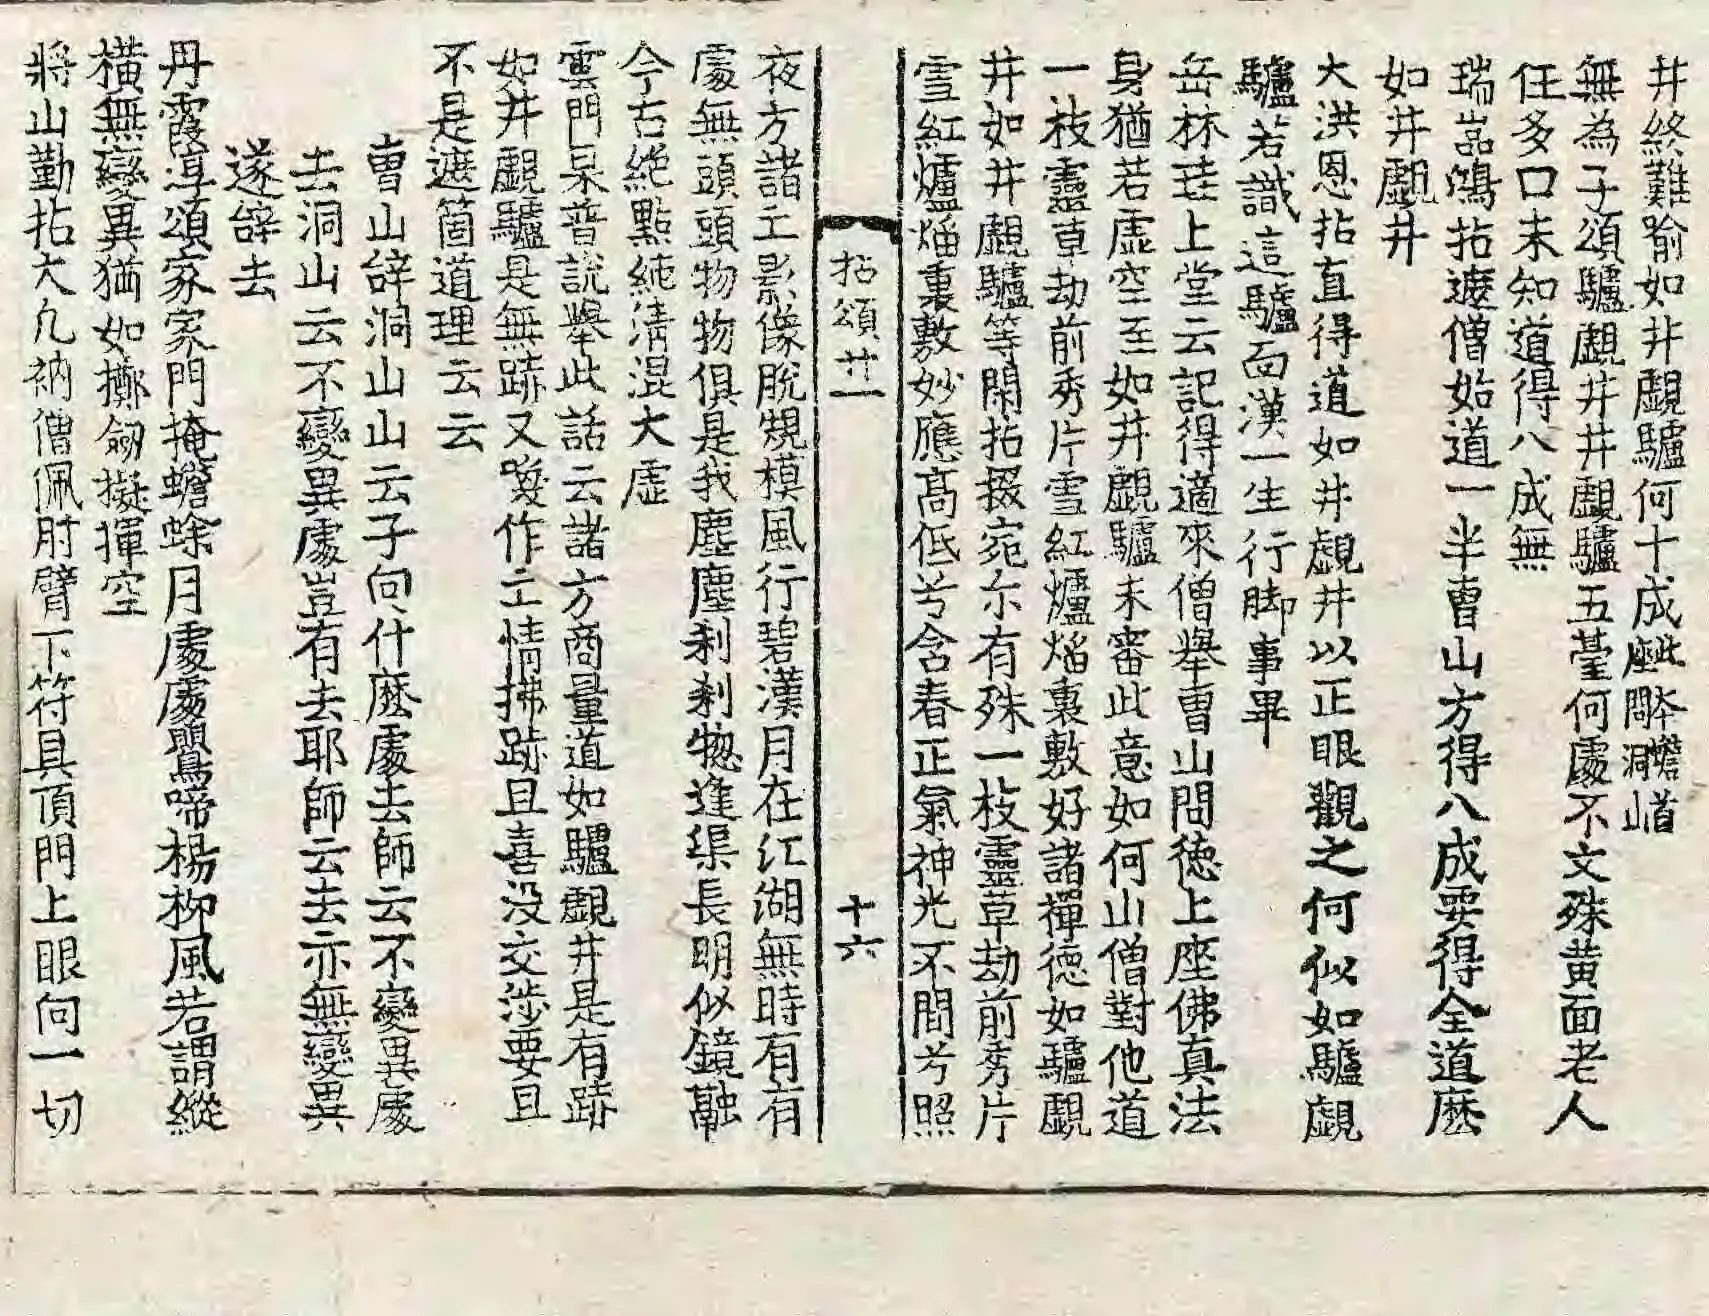 井終難喻如井覷驢何十成此本蟾座問洞嵴
無為子頌驢覷井井覷驢五䑓何處不文殊黃面老人
任多口未知道得八成無
瑞嵓鴻拈遮僧始道一半曺山方得八成要得全道麽
如井覷井
大洪恩拈直得道如井覷井以正眼觀之何似如驢覷
驢若識這驢面漢一生行脚事畢
岳林珪上堂云記得適來僧舉曺山問德上座佛真法
身猶若虛空至如井覷驢未審此意如何山僧對他道
一枝靈草劫前秀片雪紅爐焰裏敷好諸禪德如驢覷
井如井覷驢等閑拈掇宛尒有殊一枝靈草劫前秀片
雪紅爐焰裏敷妙應高低兮含春正氣神光不間兮照
拈頌廿一 十六
夜方諸工影像脫䂓模風行碧漢月在江湖無時有有
處無頭頭物物俱是我塵塵刹刹惣逢渠長明似鏡融
今古絶點純淸混大虛
雲門杲普說舉此話云諸方商量道如驢覷井是有跡
如井覷驢是無跡又喚作工情拂跡且喜沒交涉要且
不是遮箇道理云云
曺山辝洞山山云子向什麽處去師云不變異處
去洞山云不變異處豈有去耶師云去去亦無變異
遂辝去
丹霞淳頌家家門掩蟾蜍月處處鸎啼楊柳風若謂縱
橫無變異猶如擲劒擬揮空
蔣山勤拈大凡衲僧佩肘臂下符具頂門上眼向一切